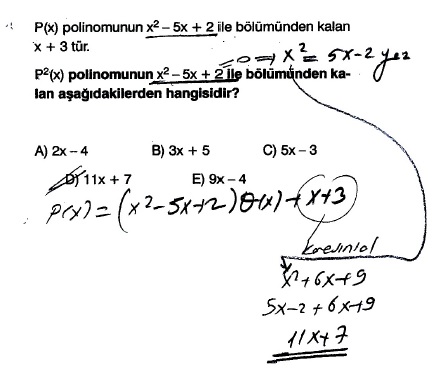 P(x) polinomunun x² – 5x + 2 ile bölümünden kalan
x + 3 tür.
=0 ⇒ x² = 5x-2 yaz
P²(x) polinomunun x² – 5x + 2 ile bölümünden ka-
lan aşağıdakilerden hangisidir?
A) 2x – 4 B) 3x + 5 C) 5x – 3
D) 11x + 7 E) 9x – 4
P(x) = (x²-5x+2)Q(x)+x+3
karesini al
x²+6x+9
5x-2+6x+9
11x+7